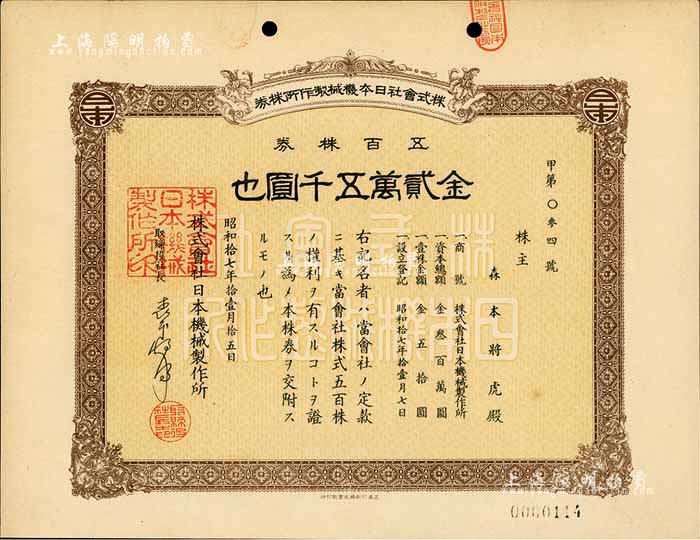 上海陽明拍賣
www.yangmingauction.com
株式會社日本機械製作所株券
五百株券
金貳萬五千圓也
甲第〇参四號
株主 森本將虎殿
一商號 株式會社日本機械製作所
一資本總額 金叁百萬圓
一壹株金額 金五拾圓
一設立登記 昭和拾七年拾壹月七日
右記名者ハ當會社ノ定款
ニ基キ當會社株式五百株
ノ權利ヲ有スルコトヲ證
スル爲メ本株券ヲ交附ス
ルモノ也
昭和拾七年拾壹月拾五日
株式會社日本機械製作所
取締役社長
株式會社日本機械製作所
株式會社日本機械製作所
上海陽明拍賣
0000114